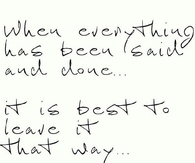 When everything
has been said
and done...
it is best to
leave it
that way...